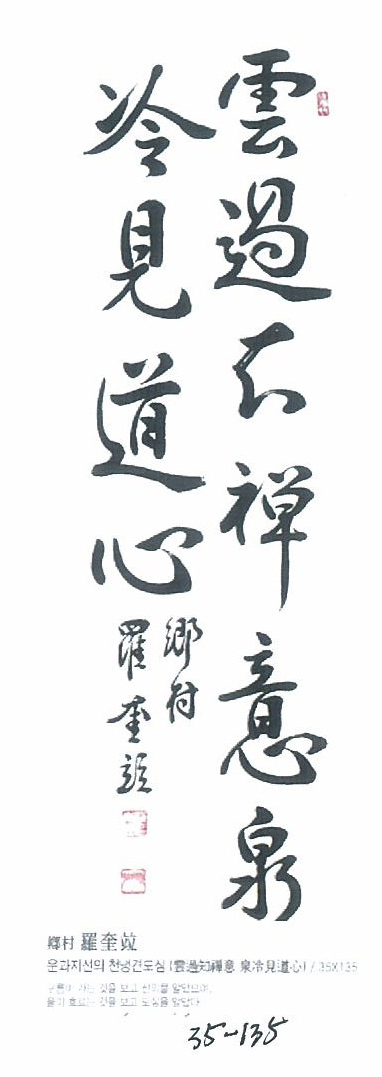 雲過知禪意泉
冷見道心
鄉村
羅奎竝
鄉村 羅奎竝
운과지선의 천냉견도심 (雲過知禪意 泉冷見道心) / 35X135
구름이 가는 것을 보고 선의를 알았으며,
물이 흐르는 것을 보고 도심을 알았다
35~135